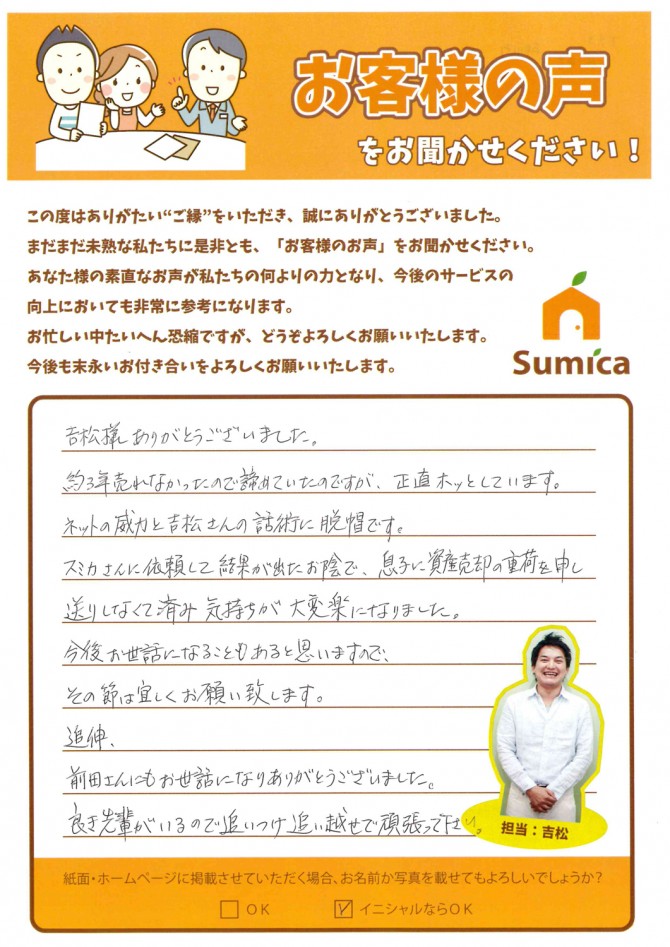 お客様の声
をお聞かせください!
この度はありがたい“ご縁”をいただき、誠にありがとうございました。
まだまだ未熟な私たちに是非とも、「お客様のお声」をお聞かせください。
あなた様の素直なお声が私たちの何よりの力となり、今後のサービスの
向上においても非常に参考になります。
お忙しい中たいへん恐縮ですが、どうぞよろしくお願いいたします。
今後も末永いお付き合いをよろしくお願いいたします。
Sumica
吉松様ありがとうございました。
約3年売れなかったので諦めていたのですが、正直ホッとしています。
ネットの威力と吉松さんの話術に脱帽です。
スミカさんに依頼して結果が出たお陰で、息子に資産売却の重荷を申し
送りしなくて済み気持ちが大変楽になりました。
今後お世話になることもあると思いますので、
その節は宜しくお願い致します。
追伸、
前田さんにもお世話になりありがとうございました。
良き先輩がいるので追いつけ追い越せで頑張って下さい。
担当：吉松
紙面・ホームページに掲載させていただく場合、お名前か写真を載せてもよろしいでしょうか?
□ OK ☑ イニシャルならOK